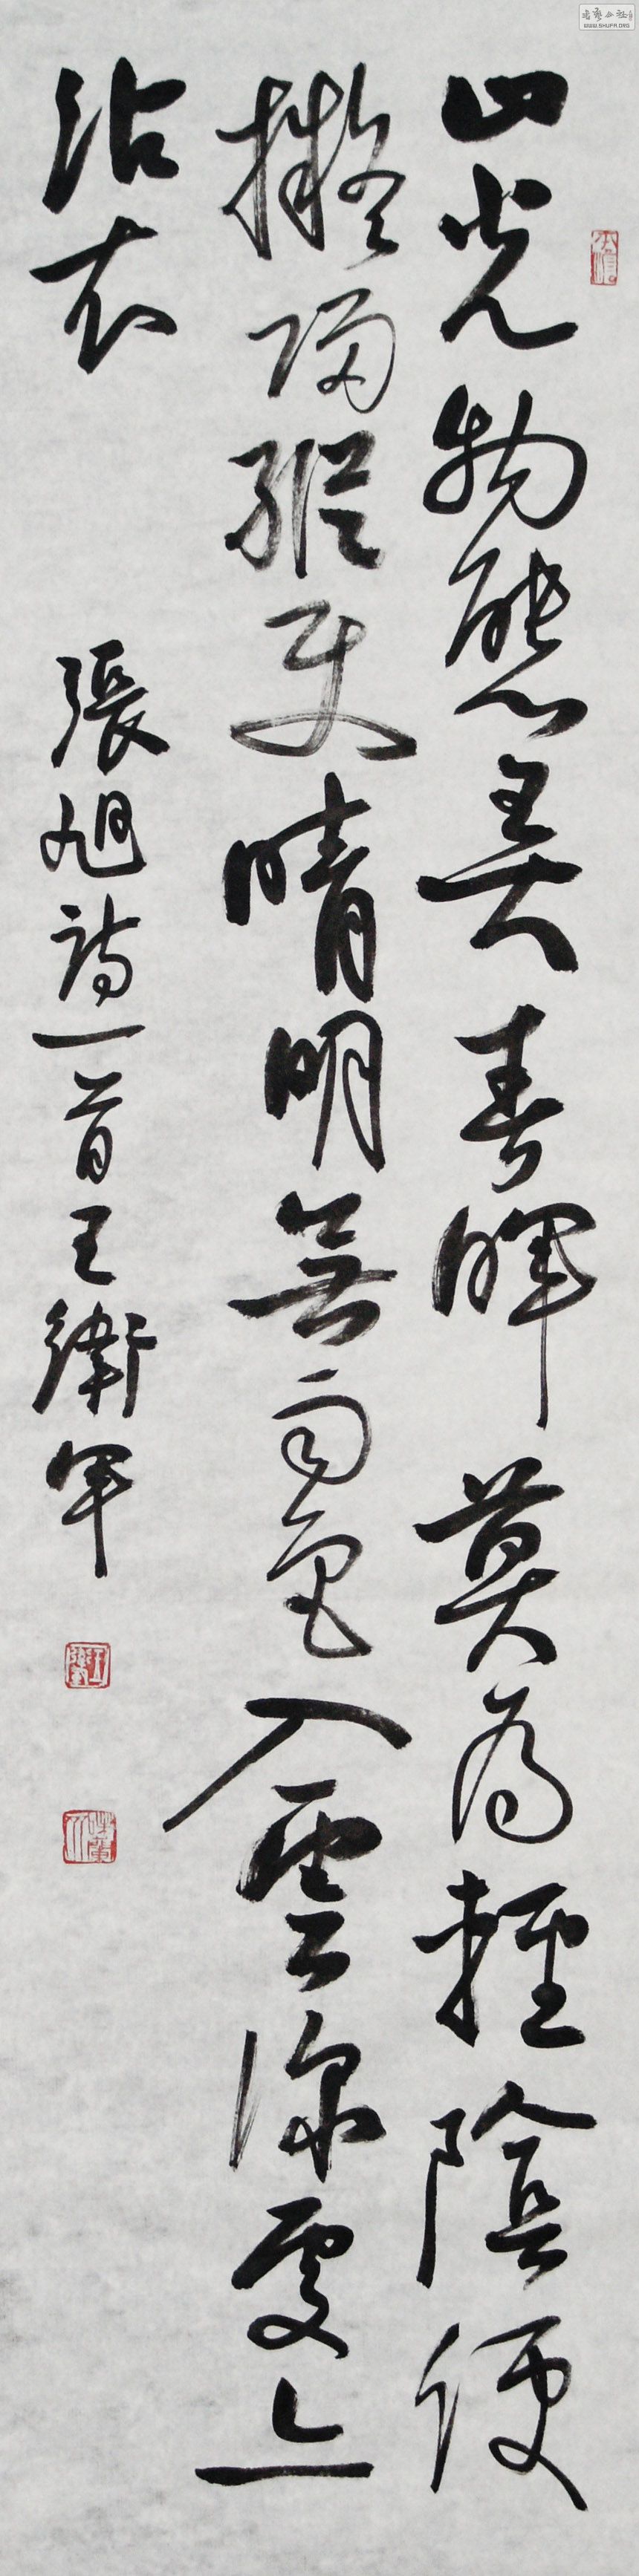 山光物態弄春暉莫為輕陰便
擬歸縱使晴明無雨色入雲深處亦
沾衣
張旭詩一首王衛軍
WWW.SHUFA.ORG